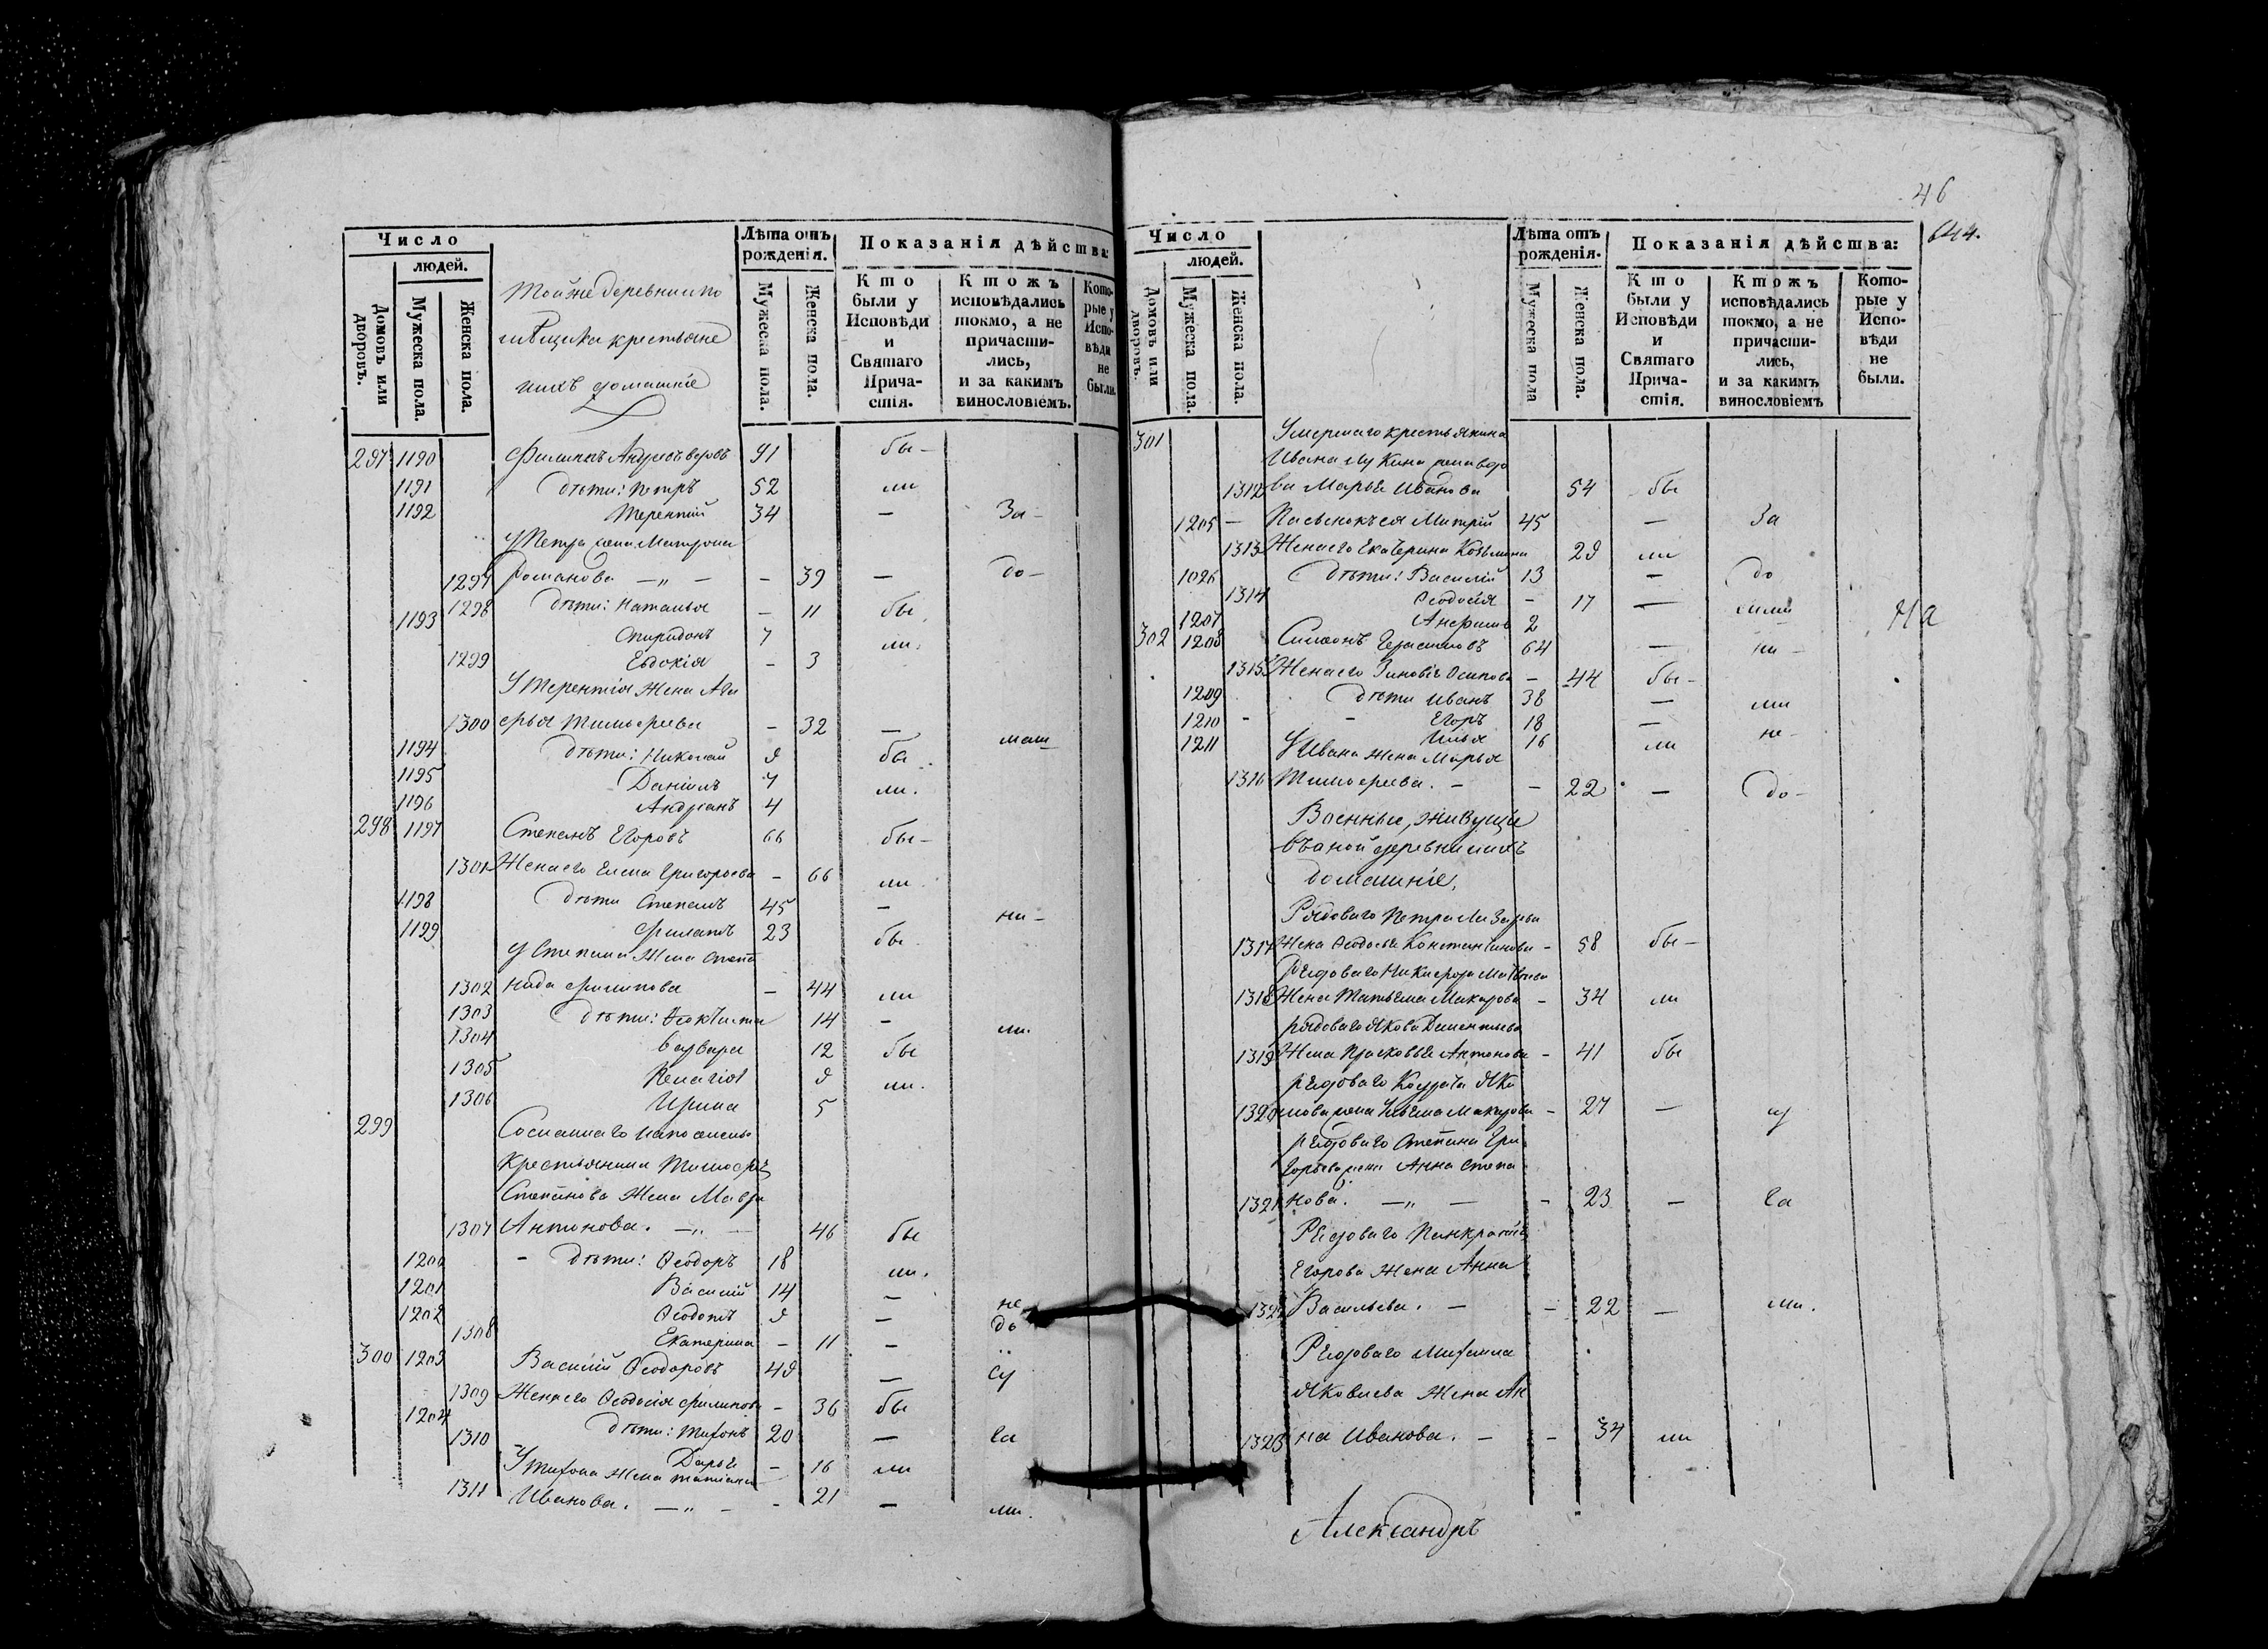 Число
людей.
Домовъ или дворовъ.
Мужеска пола.
Женска пола.
Тойже деревни по
мѣщика крестьяне
ихъ домашніе
Лѣта отъ рожденія.
Мужеска пола.
Женска пола.
Показанія дѣйства:
Кто были у Исповѣди и Святаго Причастія.
Ктожъ исповѣдались токмо, а не причастились, и за какимъ винословіемъ.
Которые у Исповѣди не были.
297 1190 Филиппъ Андреевъ 91 бы-
1191 дѣти: Петръ 52 ли
1192 Терентій 34 — За-
У Петра жена Матрона
1297 Романова —„— - 39 — до-
1298 дѣти: Наталья - 11 бы
1193 Спиридонъ 7 ли.
1299 Евдокія - 3
У Терентія жена Ага
1300 фья Тимофеева - 32 —
1194 дѣти: Николай 9 бы маш
1195 Даніилъ 7 ли.
1196 Андріанъ 4
298 1197 Степанъ Егоровъ 66 бы-
1301 Жена его Елена Григорьева - 66 ли
1198 дѣти Степанъ 45 — ни-
1199 Филатъ 23 бы
У Степана жена Степа
1302 нида Филипова - 44 ли
1303 дѣти: Ѳеоктиста 14 - ми.
1304 Варвара 12 бы
1305 Пелагія 9 ли.
1306 Ирина 5
299 Сосланнаго на поселенье
крестьянина Тимофея
Степанова жена Мавра
1307 Антонова. —„— 46 бы
1200 - дѣти: Ѳеодоръ 18 ли.
1201 Василій 14 — не
1202 Ѳеодотъ 9 — до
1308 Екатерина - 11 -
300 1203 Василій Ѳеодоровъ 49 — су
1309 Жена его Ѳеодосія Филипова - 36 бы
1204 дѣти: Тихонъ 20 — га
1310 Дарья - 16 ли
У Тихона жена Татіана
1311 Иванова. —„— - 21 - ми.
46
644.
Число
людей.
Домовъ или дворовъ.
Мужеска пола.
Женска пола.
Лѣта отъ рожденія.
Мужеска пола
Женска пола.
Показанія дѣйства:
Кто были у Исповѣди и Святаго Причастія.
Ктожъ исповѣдались токмо, а не причастились, и за какимъ винословіемъ
Которые у Исповѣди не были.
301 Умершаго крестьянина
Ивана Лукина жена вдо
1312 ва Марья Иванова 54 бы
1205 - Пасынокъ ея Митрій 45 — За
1313 Жена его Екатерина Козьмина 29 ли
1026 дѣти: Василій 13 — до
1314 Ѳеодосія - 17 —
1207 Анфимъ 2 На
302 1208 Симеонъ Герасимовъ 64 — ни-
1315 Жена его Зиновія Осипова - 44 бы-
1209 дѣти Иванъ 38 — ми
1210 - - Егоръ 18 —
1211 Илья 16 ли не-
У Ивана жена Марья
1316 Тимофеева. - - 22 — до-
Военные, живущіе
въ аной деревни и ихъ
домашніе,
Рядоваго Петра Лазарева
1317 Жена Ѳеодосья Константинова - 58 бы-
Рядоваго Никифора Матвѣева
1318 Жена Татьяна Макарова - 34 ли
рядоваго Якова Дементьева
1319 Жена Прасковья Антонова - 41 бы
рядоваго Кондрата Яки
1320 мова жена Ульяна Макарова - 27 — су
рядоваго Степана Гри
горьева жена Анна Степа
1321 нова. —„— - 23 — га
Рядоваго Панкратія
Егорова Жена Анна
1322 Васильева. - - 22 — ми.
Рядоваго Михаила
Яковлева Жена Ан
1323 на Иванова. - - 34 ли
Александръ